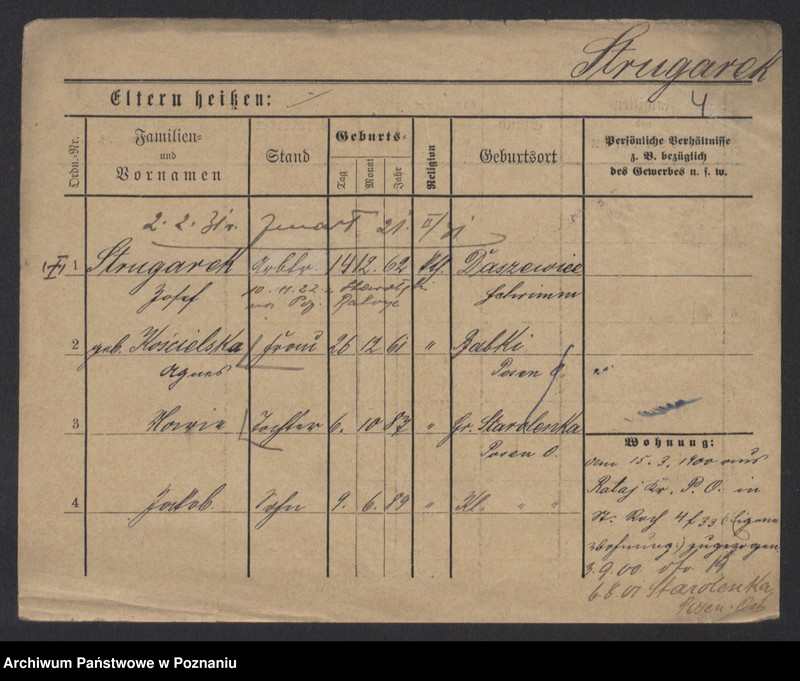 Strugarek
4
Eltern heißen:
Ordn.-Nr.
Familien-
und
Vornamen
Stand
Geburts-
Tag
Monat
Jahr
Religion
Geburtsort
Persönliche Verhältnisse
z. B. bezüglich
des Gewerbes u. s. w.
2. 2. 31
21. II/31
1 Strugarek 14 12. 62 kth. Daszewice
Josef 10. 11. 22 Schrimm
2 geb. Kościelska Frau 26 12 61 " Babki
Agnes Posen O.
3 Marie Tochter 6. 10 87 " Gr. Starolenka
Posen O.
4 Jakob Sohn 9. 6. 89 " Kl. " "
Wohnung:
15. 3. 1900 aus
Rataj Kr. P. O. in
St. Roch 4 f 33 (Eigene
Wohnung:) zugezogen
3. 9. 00. 19
6. 8. 01 Starolenka
Posen-Ost
Archiwum Państwowe w Poznaniu